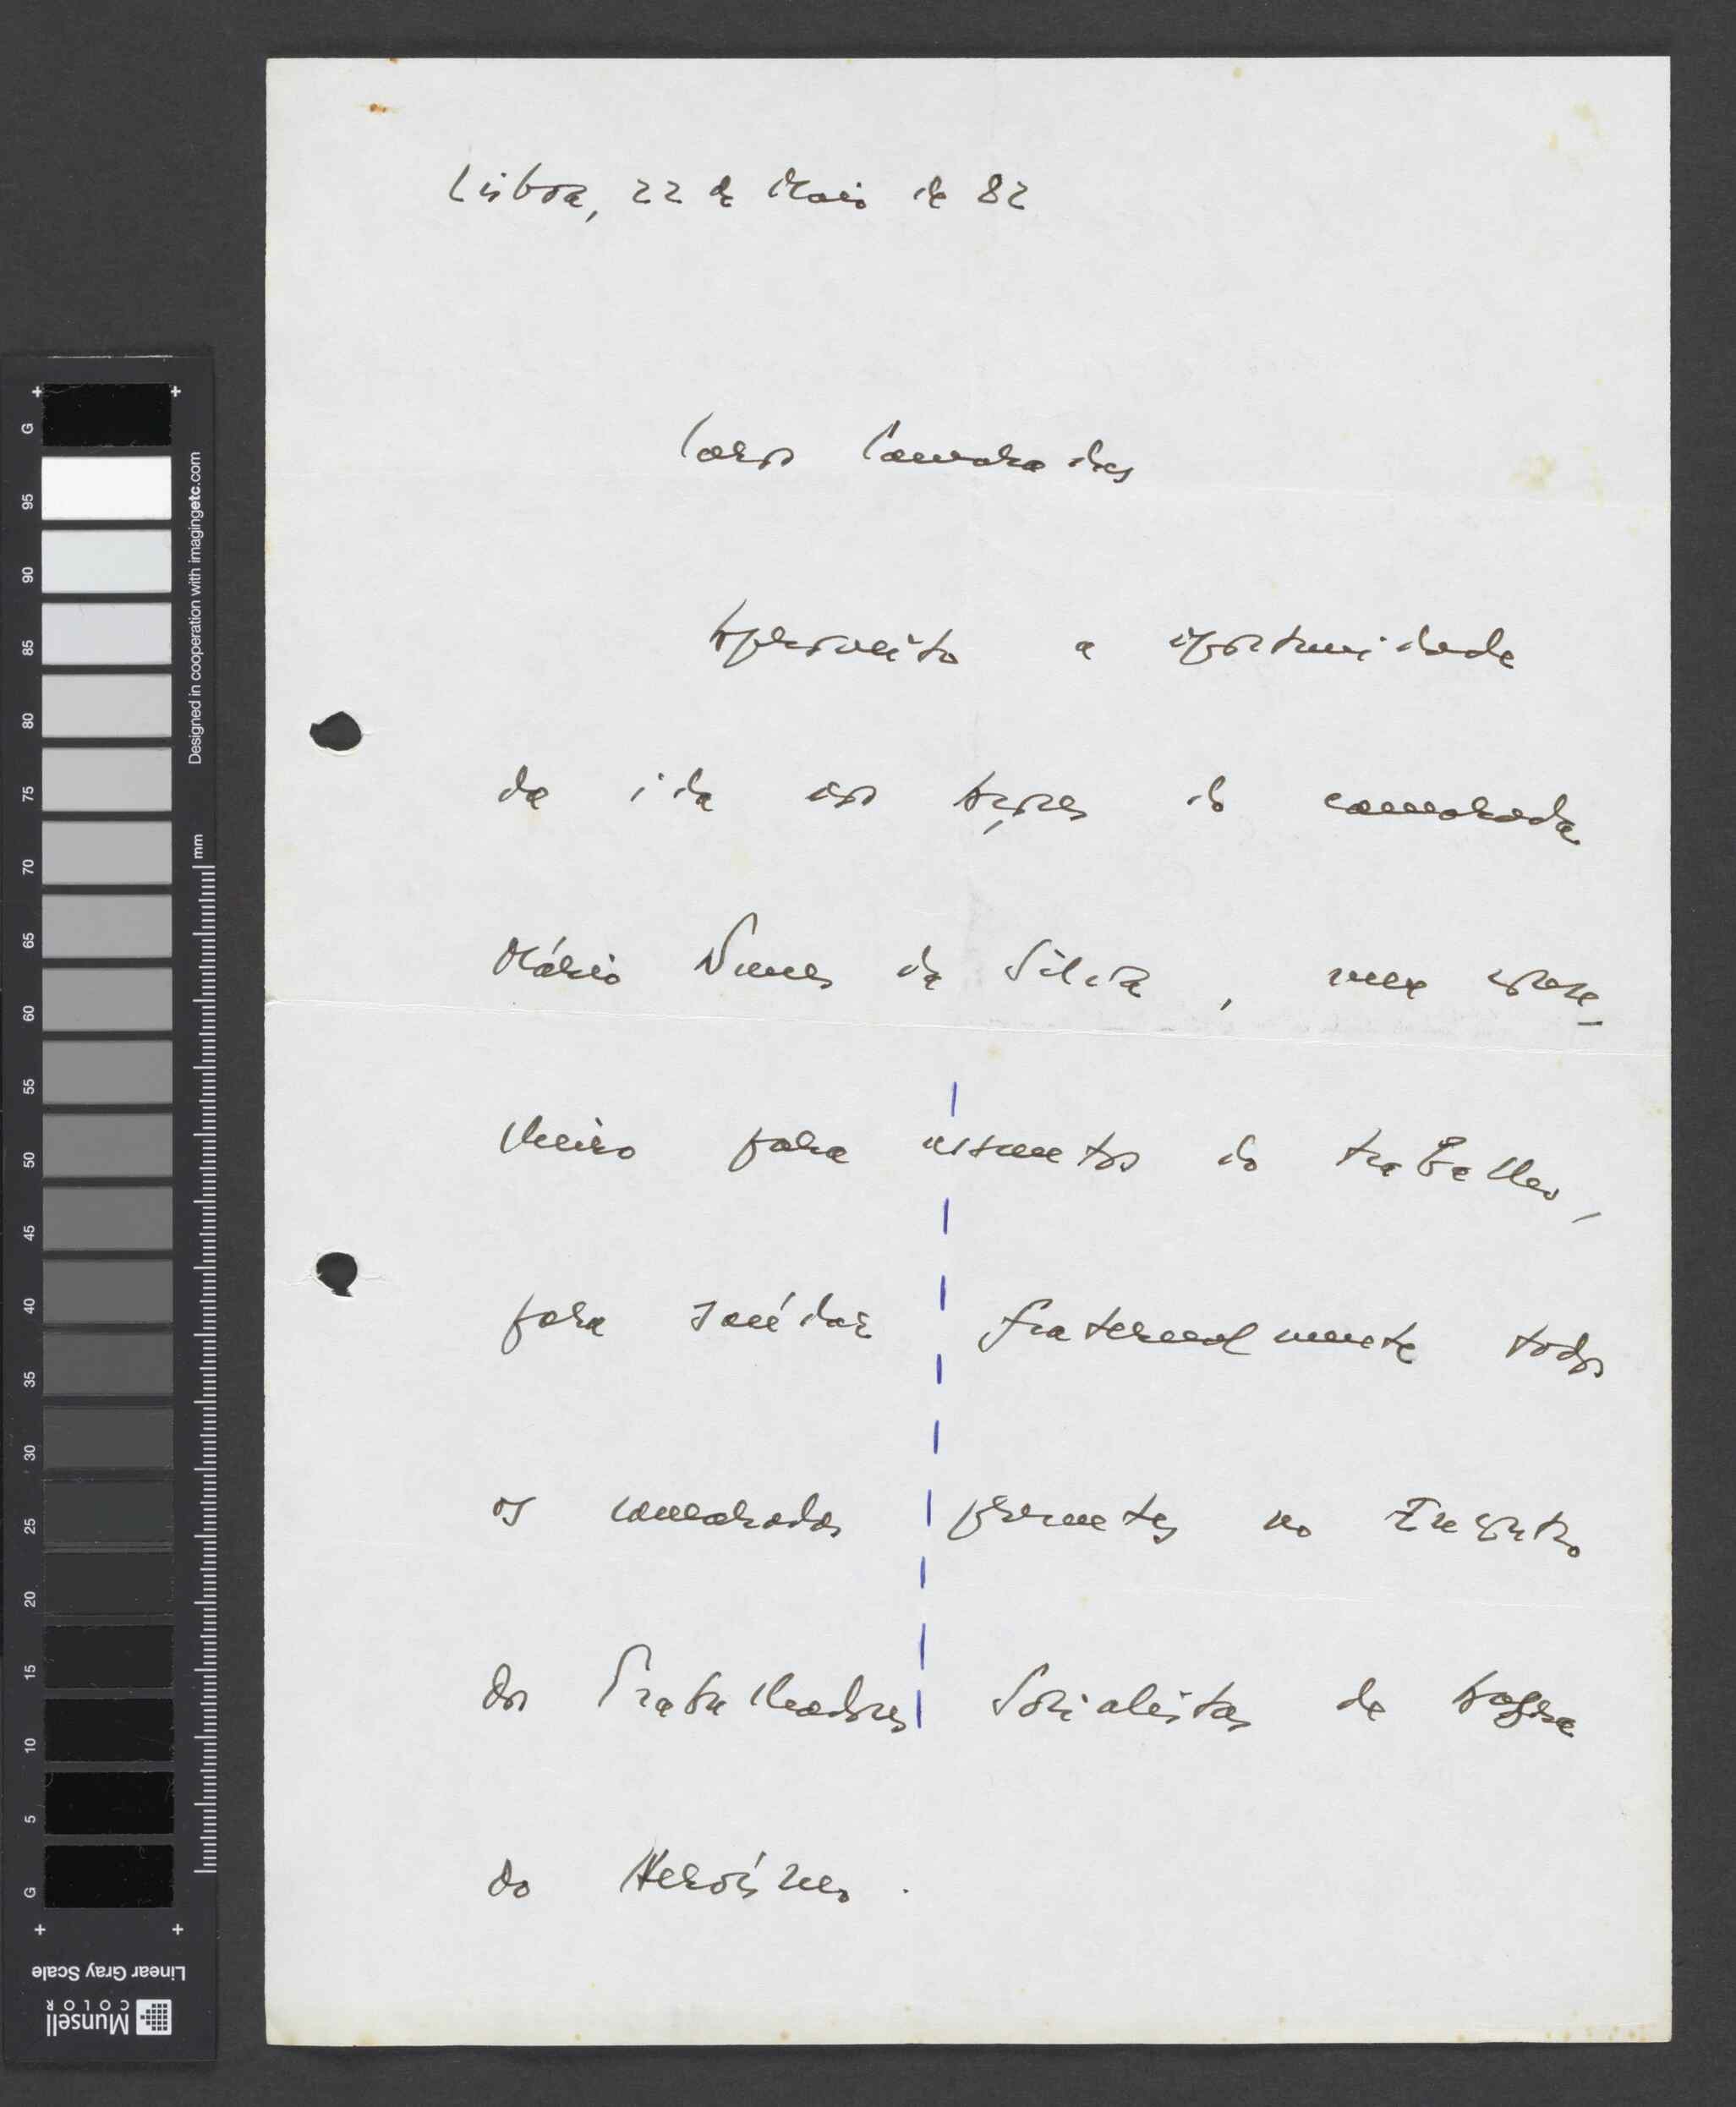 Lisboa, 22 de Maio de 82
Caros Camaradas
Aproveito a oportunidade
da ida aos Açores do camarada
Mário Nunes da Silva, meu conse-
lheiro para assuntos do trabalho,
para saudar fraternalmente todos
os camaradas presentes no Encontro
dos Trabalhadores Socialistas de Angra
do Heroísmo.
G 95 90 85 80 75 70 65 60 55 50 45 40 35 30 25 20 15 10 5 G
Designed in cooperation with imagingetc.com
mm
Linear Gray Scale
Munsell
COLOR